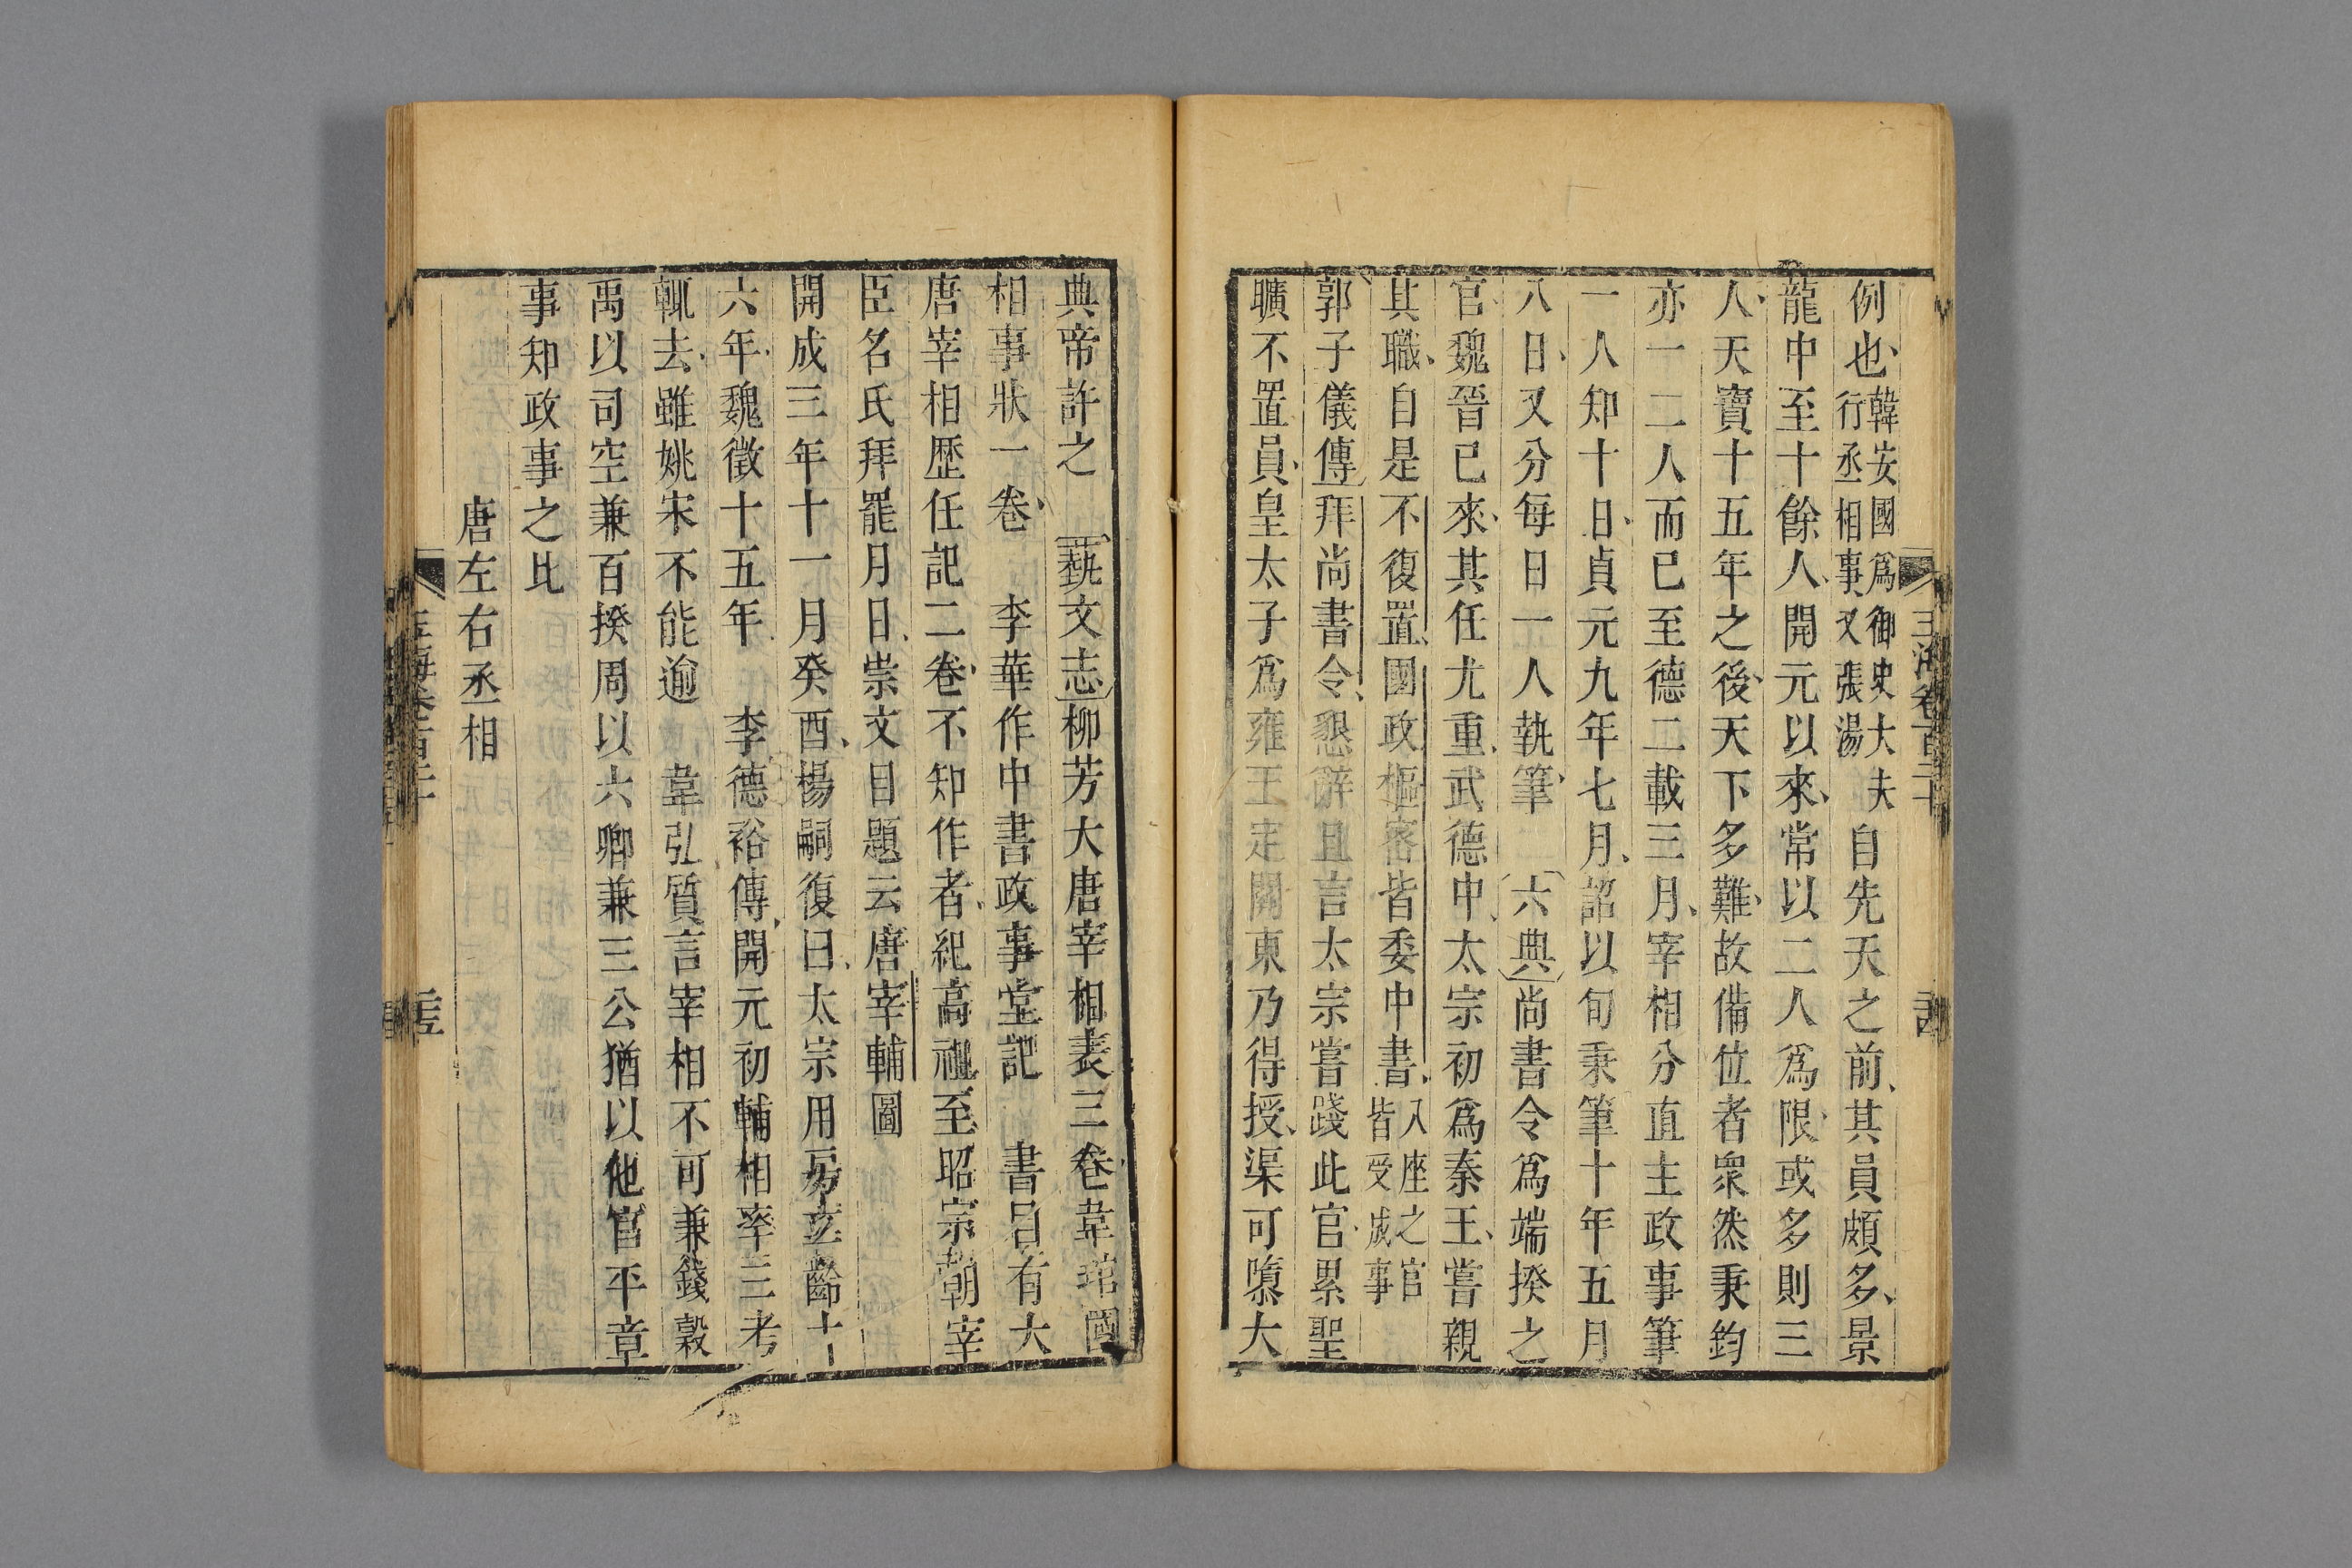 例也韓安國為御史大夫行丞相事又張湯自先天之前其員頗多景
龍中至十餘人開元以來常以二人爲限或多則三
人天寶十五年之後天下多難故備位者衆然秉鈞
亦一二人而已至德二載三月宰相分直主政事筆
一人知十日貞元九年七月詔以旬秉筆十年五月
八日又分每日一人執筆 六典尚書令爲端揆之
官魏晉已來其任尤重武德中太宗初爲秦王嘗親
其職自是不復置國政樞密皆委中書八座之官皆受成事
郭子儀傳拜尚書令懇辭且言太宗嘗踐此官累聖
曠不置員皇太子爲雍王定關東乃得授渠可隳大
典帝許之 藝文志柳芳大唐宰相表三卷韋琯國
相事狀一卷 李華作中書政事堂記 書目有大
唐宰相歷任記二卷不知作者紀高祖至昭宗朝宰
臣名氏拜罷月日崇文目題云唐宰輔圖
開成三年十一月癸酉楊嗣復曰太宗用房玄齡十
六年魏徵十五年 李德裕傳開元初輔相率三考
輒去雖姚宋不能逾 韋弘質言宰相不可兼錢穀
禹以司空兼百揆周以六卿兼三公猶以他官平章
事知政事之比
唐左右丞相
玉海卷百二十